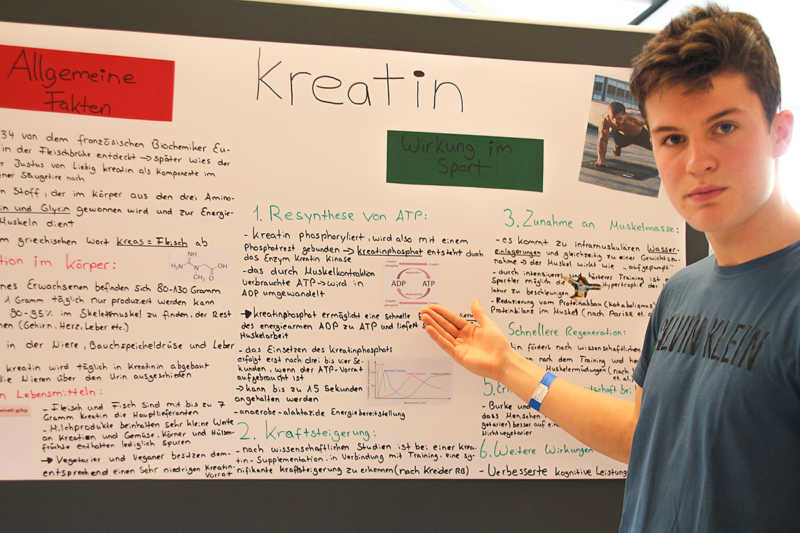 Allgemeine
Fakten
34 von dem französischen Biochemiker Eu-
in der Fleischbrühe entdeckt → später wies der
Justus von Liebig kreatin als Komponente im
Säugetiere nach
Stoff, der im körper aus den drei Amino-
in und Glycin gewonnen wird und zur Energie-
Muskeln dient
griechischen Wort kreas = Fleisch ab
tion im Körper:
nes Erwachsenen befinden sich 80-130 Gramm
1 Gramm täglich nur produziert werden kann
90-95% im Skelettmuskel zu finden, der Rest
(Gehirn, Herz, Leber etc.)
in der Niere, Bauchspeicheldrüse und Leber
kreatin wird täglich in Kreatinin abgebaut
die Nieren über den Urin ausgeschieden
n Lebensmitteln:
- Fleisch und Fisch sind mit bis zu 7
Gramm kreatin die Hauptlieferanten
- Milchprodukte beinhalten sehr kleine Werte
an Kreatin und Gemüse, Körner und Hülsen-
früchte enthalten lediglich Spuren
→ Vegetarier und Veganer besitzen dem-
entsprechend einen sehr niedrigen Kreatin-
Vorrat
Kreatin
Wirkung im
Sport
1. Resynthese von ATP:
- Kreatin phosphoryliert, wird also mit einem
Phosphatrest gebunden → kreatinphosphat entsteht durch
das Enzym Kreatin Kinase
- das durch Muskelkontraktion
verbrauchte ATP → wird in
ADP umgewandelt
ADP ATP
→ kreatinphosphat ermöglicht eine schnelle
des energiearmen ADP zu ATP und liefert s
Muskelarbeit
- das Einsetzen des Kreatinphosphats
erfolgt erst nach drei bis vier Se-
kunden, wenn der ATP-Vorrat
aufgebraucht ist
→ kann bis zu 15 Sekunden
angehalten werden
- anaerobe-alaktazide Energiebereitstellung
2. Kraftsteigerung:
- nach wissenschaftlichen Studien ist bei einer krea-
tin-Supplementation in Verbindung mit Training, eine sig-
nifikante kraftsteigerung zu erkennen (nach Kreider RB)
3. Zunahme an Muskelmasse:
- es kommt zu intramuskulären Wasser-
einlagerungen und gleichzeitig zu einer Gewichtszu-
nahme → der Muskel wirkt wie "aufgepumpt"
- durch intensiveres härteres Training ist
Sportler möglich die Hypertrophie der
latur zu beschleunigen
- Reduzierung vom Proteinabbau (katabolismus)
Proteinbilanz im Muskel (nach Parise et
Schnellere Regeneration:
tin fördert nach wissenschaftlichen
nach dem Training und
Muskelermüdungen (nach
et al.
5.
bei
- Burke und
dass Menschen
getarier) besser auf eine
nichtvegetarier
6. Weitere Wirkungen
- Verbesserte kognitive Leistung
CALVIN KLEIN